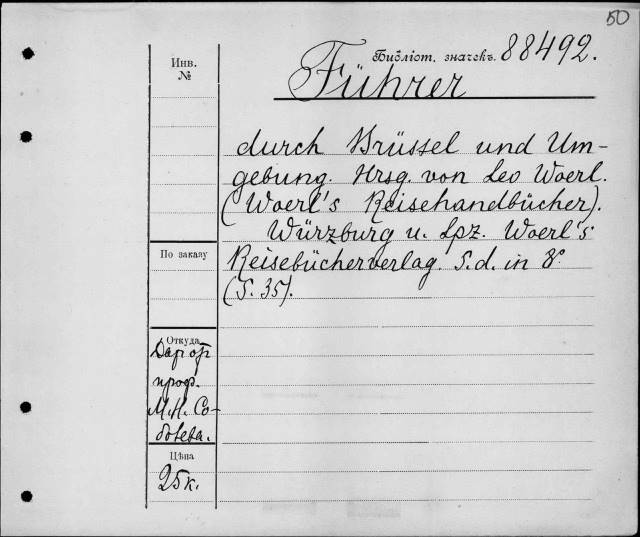 50
Инв.
№
Библіот. значекъ. 88492.
Führer
durch Brüssel und Um-
gebung. Hrsg. von Leo Woerl.
(Woerl's Reisehandbücher).
Würzburg u. Lpz. Woerl's
Reisebücherverlag. S.d. in 8°
(S. 35).
По заказу
Откуда
Дар от
проф.
М.Н. Со-
болева.
Цѣна
25к.